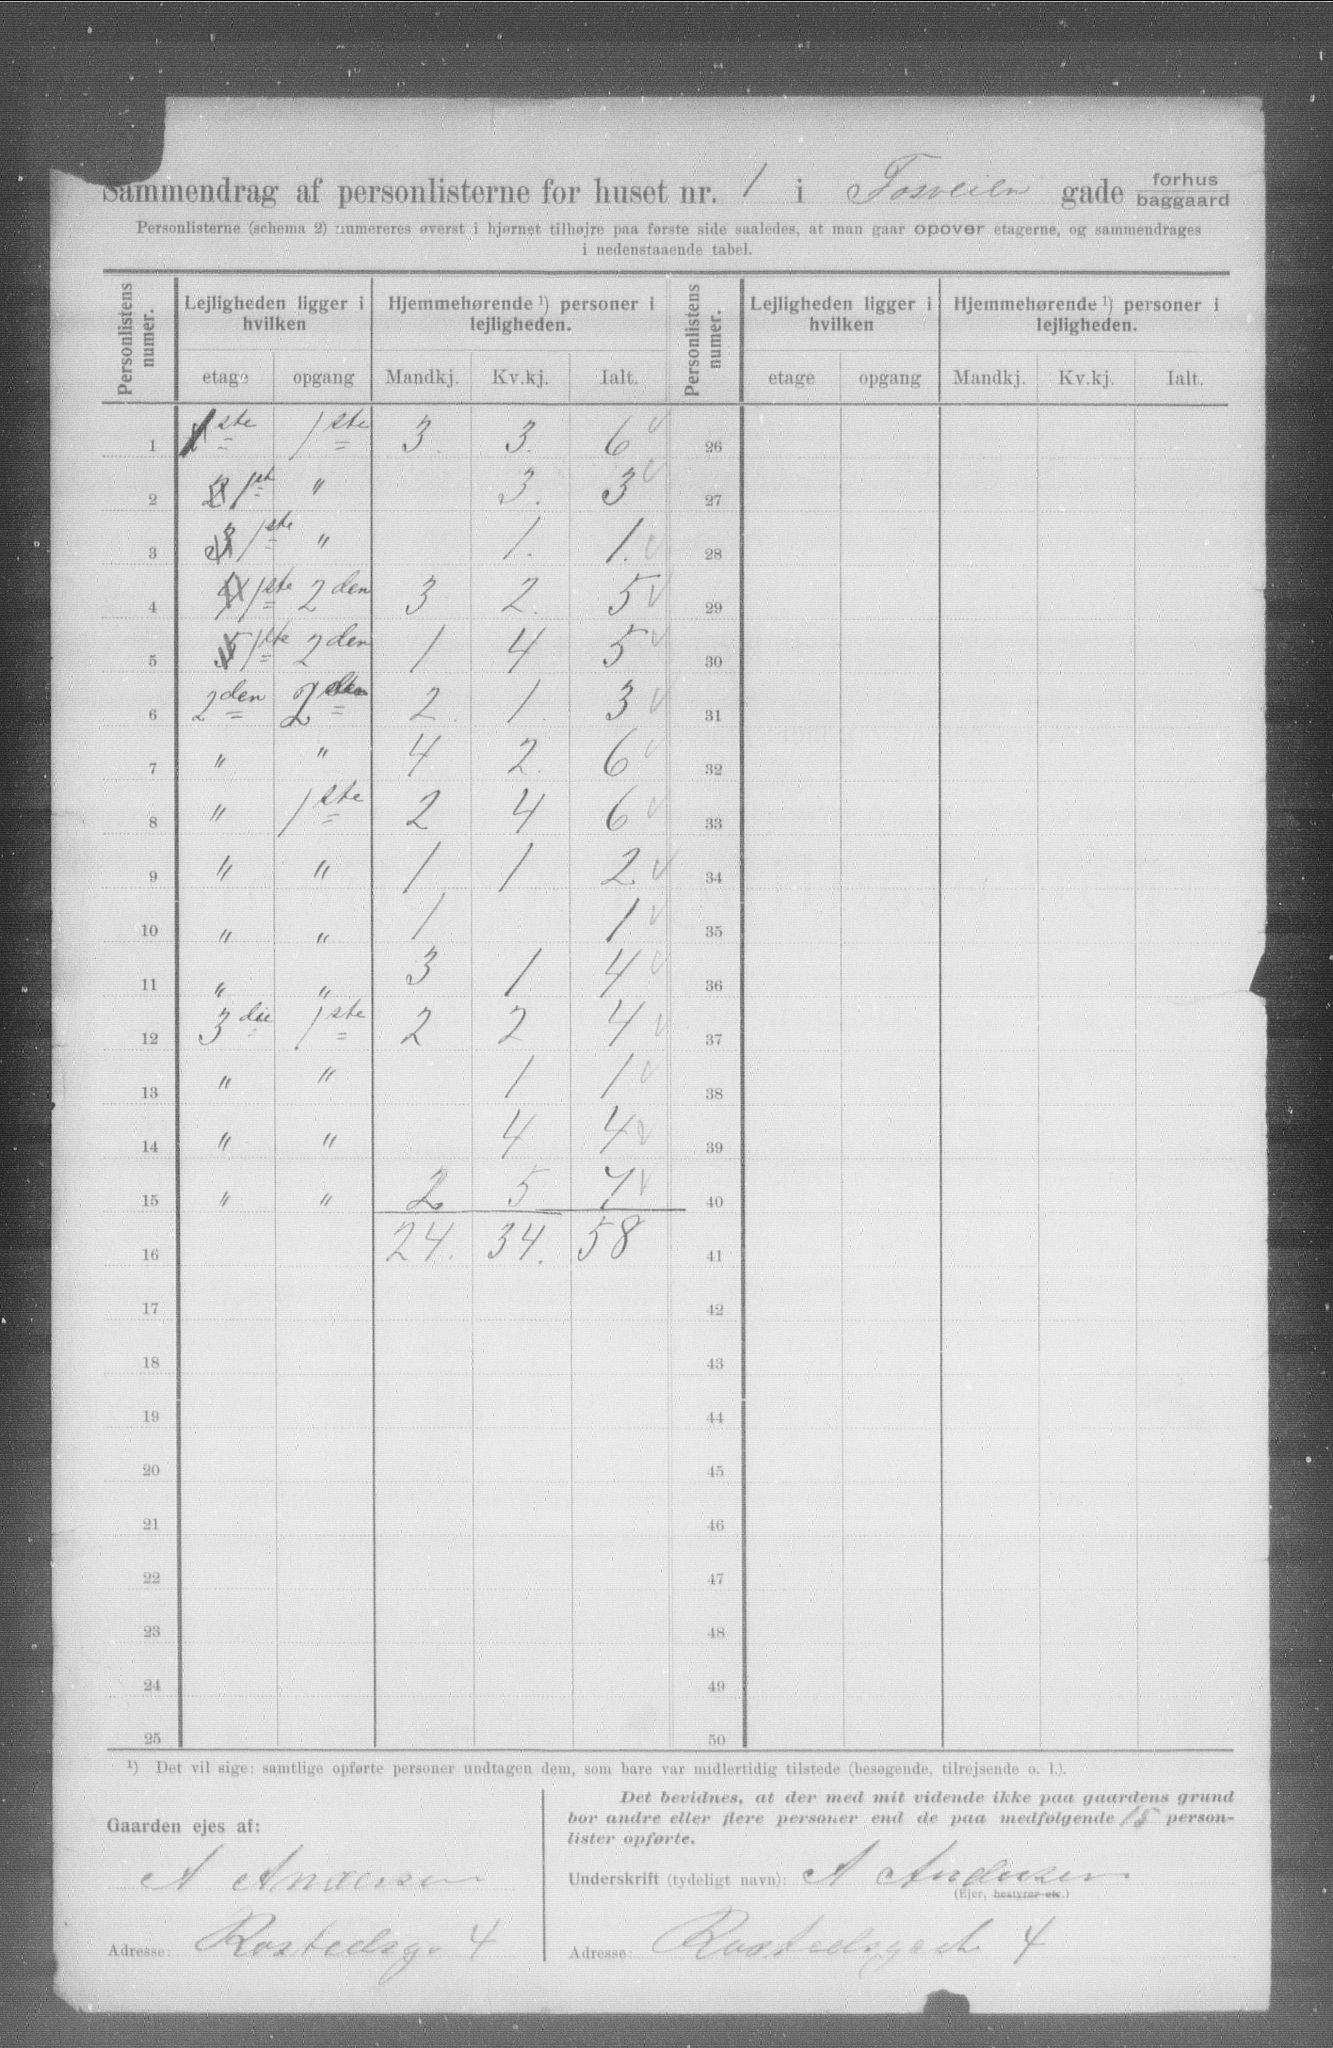 Sammendrag af personlisterne for huset nr. 1 i Fosveien gade forhus baggaard
Personlisterne (schema 2) numereres øverst i hjørnet tilhøjre paa første side saaledes, at man gaar opover etagerne, og sammendrages
i nedenstaaende tabel.
Personlistens numer. Lejligheden ligger i hvilken Hjemmehørende ¹) personer i lejligheden. Personlistens numer. Lejligheden ligger i hvilken Hjemmehørende ¹) personer i lejligheden.
etage opgang Mandkj. Kv.kj. Ialt. etage opgang Mandkj. Kv.kj. Ialt.
1 1ste 1ste 3. 3. 6 26
2 1st " 3. 3 27
3 1ste " 1. 1. 28
4 1ste 2den 3 2. 5 29
5 1ste 2den 1 4 5 30
6 2den 2den 2. 1. 3 31
7 " " 4 2. 6 32
8 " 1ste 2 4 6 33
9 " " 1 1 2 34
10 " " 1 1 35
11 " " 3 1 4 36
12 3die 1ste 2 2 4 37
13 " " 1 1 38
14 " " 4 4 39
15 " " 2 5 7 40
16 24. 34. 58 41
17 42
18 43
19 44
20 45
21 46
22 47
23 48
24 49
25 50
¹) Det vil sige: samtlige opførte personer undtagen dem, som bare var midlertidig tilstede (besøgende, tilrejsende o. l.).
Gaarden ejes af:
A Andersen
Adresse: Rostedsg. 4
Det bevidnes, at der med mit vidende ikke paa gaardens grund
bor andre eller flere personer end de paa medfølgende 15 person-
lister opførte.
Underskrift (tydeligt navn): A Andersen
(Ejer, bestyrer etc.)
Adresse: Rostedsgade 4